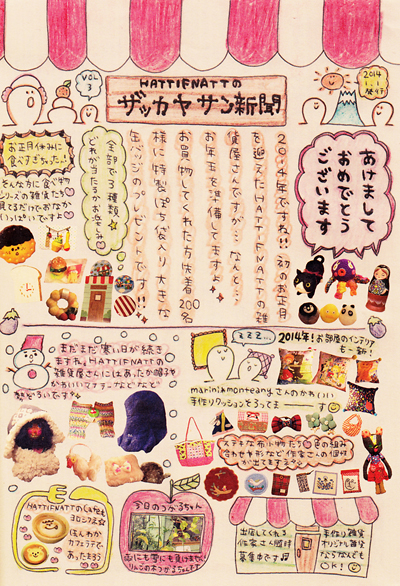 VOL 3
HATTIFNATTの
ザッカヤサン新聞
2014
1.1
発行
あけまして
おめでとう
ございます
2014年ですね!!初のお正月
を迎えたHATTIFNATTの雑
貨屋さんですが…なんと…
お年玉を準備してます
お買物してくれた方先着200名
様に特製ぽち袋入り大きな
缶バッジのプレゼントです!!
全部で3種類
どれが当たるかお楽しみ
お正月休みに
食べすぎちゃった!
そんな方に食べ物
シリーズの雑貨たち
見てるだけでおなか
いっぱいですよ
まだまだ寒い日が続き
ますね。HATTIFNATTの
雑貨屋さんにはあったか帽子や
かわいいマフラーなどなど
zzz...
2014年!お部屋のインテリア
も一新!
marini*monteanyさんのかわいい
手作りクッションそろってまーす
ステキな布小物たち 色の組み
合わせや形など作家さんの個性
が出てますネ
HATTIFNATTのCafeも
ヨロシクネ
ほんわか
カフェラテで
あったまろう
今日のつがるちゃん
雨にも雪にも負けません
りんごの木つがるちゃんです
出店してくれる
作家さん随時
募集中です
手作り雑貨
オリジナル雑貨
ならなんでも
OK!